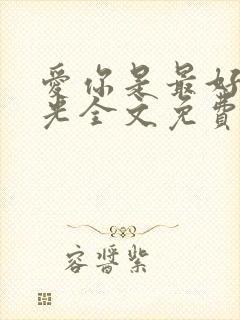 爱你是最好
光全文免费
容晋紫